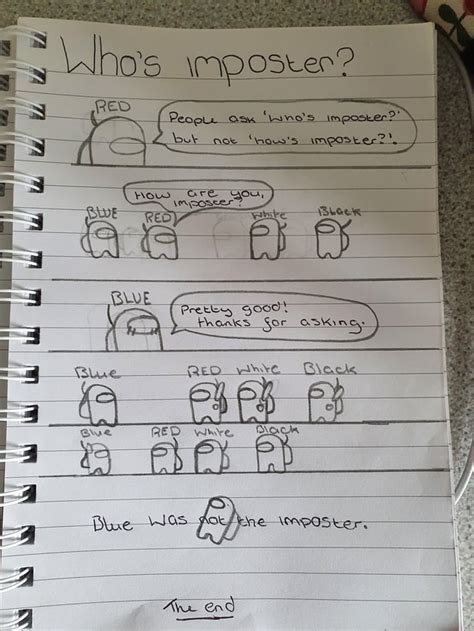 Who's imposter?
RED
People ask 'Who's imposter?'
but not 'how's imposter?'.
How are you,
imposter?
BLUE RED White Black
BLUE
Pretty good!
thanks for asking.
Blue RED White Black
Blue RED White Black
Blue was not the imposter.
The end